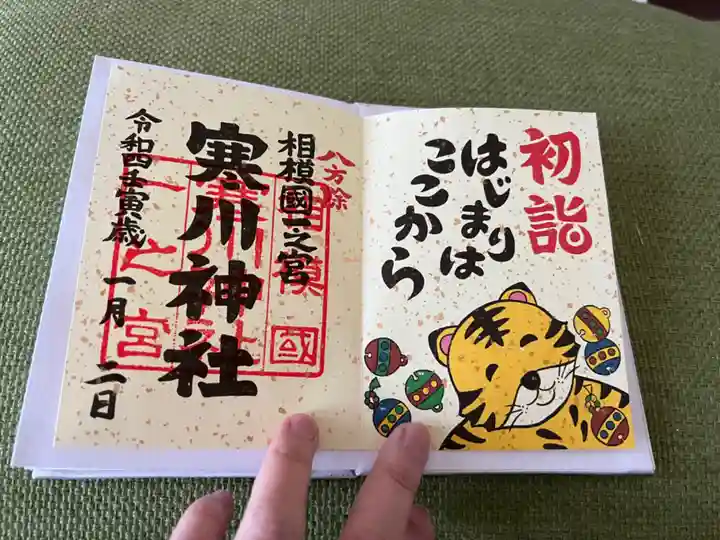 初詣
はじまりは
ここから
八方除
相模國一之宮
寒川神社
令和四年壬寅歳
一月二日
相模國
寒川神社
一之宮